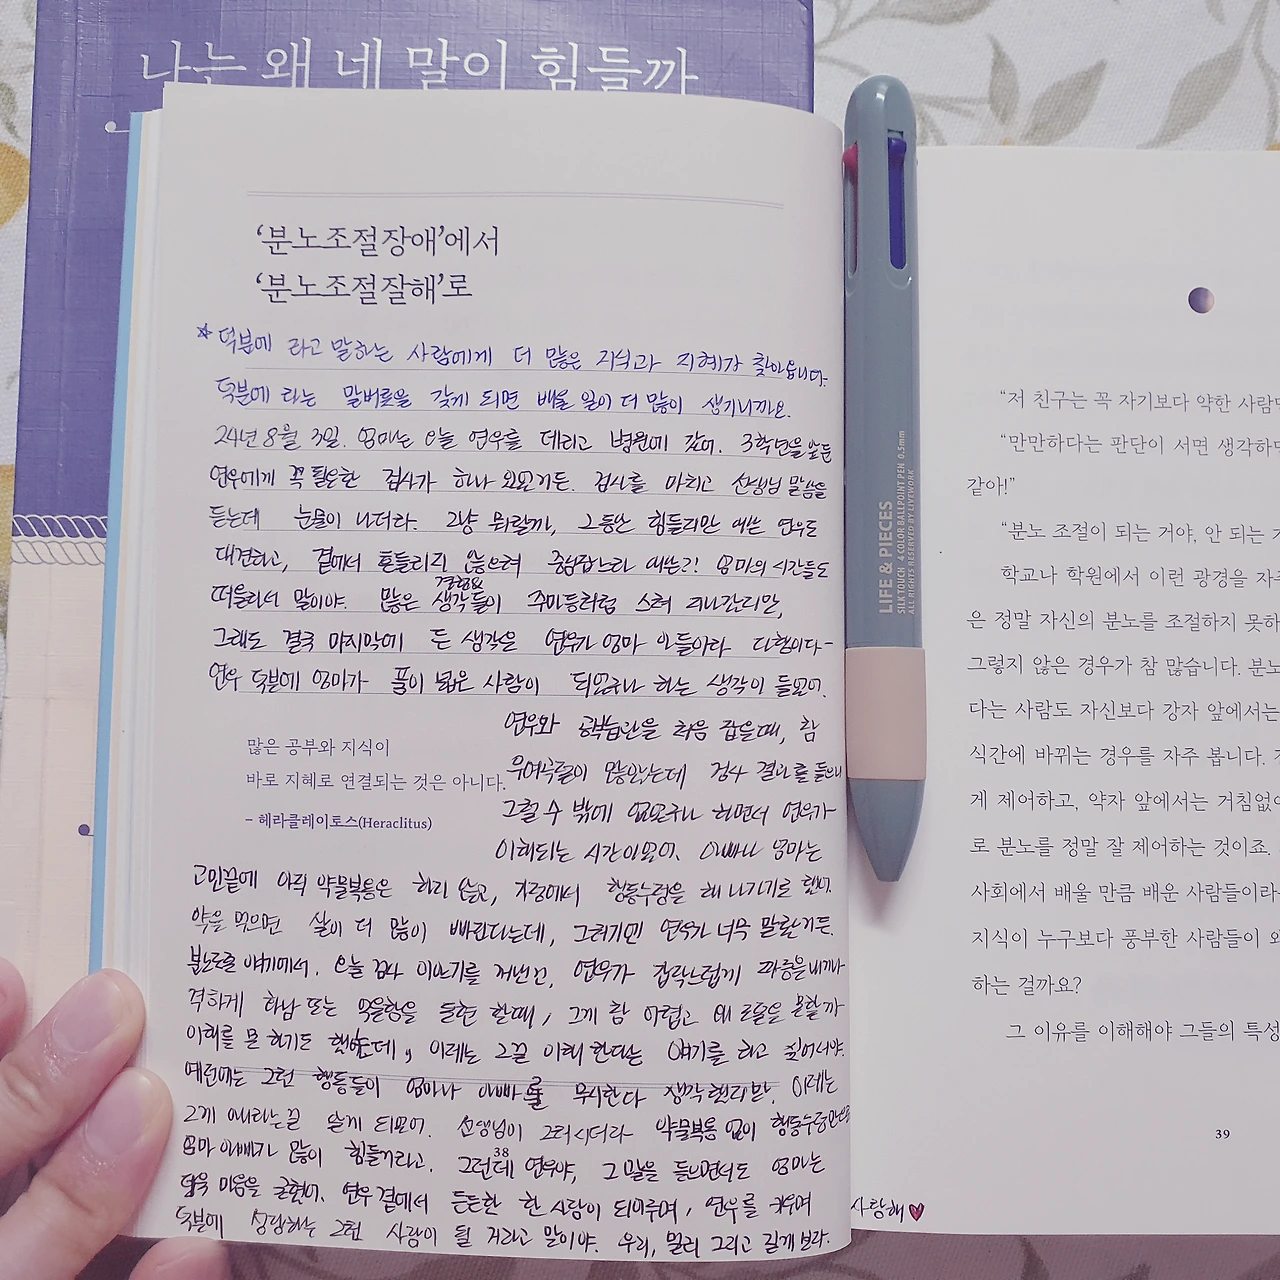 나는 왜 네 말이 힘들까
‘분노조절장애’에서
‘분노조절잘해’로
* 덕분에 라고 말하는 사람에게 더 많은 지식과 지혜가 찾아옵니다.
덕분에 라는 말버릇을 갖게 되면 배울 일이 더 많이 생기니까요.
24년 8월 3일. 엄마는 오늘 연우를 데리고 병원에 갔어. 3학년을 앞둔
연우에게 꼭 필요한 검사가 하나 있었거든. 검사를 마치고 선생님 말씀을
듣는데 눈물이 나더라. 그냥 뭐랄까, 그동안 힘들지만 애쓴 연우도
대견하고, 곁에서 흔들리지 않으려 중심잡느라 애쓴?! 엄마의 시간들도
경험요
떠올라서 말이야. 많은 생각들이 주마등처럼 스쳐 지나간지만,
그래도 결국 마지막에 든 생각은 연우가 엄마 아들이라 다행이다-
연우 덕분에 엄마가 품이 넓은 사람이 되었구나 하는 생각이 들었어.
연우와 공부습관을 처음 잡을때, 참
우여곡절이 많았는데 검사 결과를 들으니
그럴 수 밖에 없었구나 하면서 연우가
이해되는 시간이었어. 아빠나 엄마는
많은 공부와 지식이
바로 지혜로 연결되는 것은 아니다.
– 헤라클레이토스(Heraclitus)
고민끝에 아직 약물복용은 하지 않고, 가정에서 행동수정을 해 나가기로 했어.
약을 먹으면 살이 더 많이 빠진다는데, 그러기엔 연우가 너무 말랐거든.
분노조절 얘기에서. 오늘 검사 이야기를 꺼낸건, 연우가 갑작스럽게 짜증을내거나
격하게 화남 또는 억울함을 표현 할때, 그게 참 어렵고 왜 조절을 못할까
이해를 못 하기도 했었는데, 이제는 그걸 이해 한다는 얘기를 하고 싶어서야.
예전에는 그런 행동들이 엄마나 아빠를 무시한다 생각했지만, 이제는
그게 아니라는걸 알게 되었어. 선생님이 그러시더라- 약물복용 없이 행동수정만으로
엄마 아빠가 많이 힘들거라고. 그런데 연우야, 그 말을 들으면서도 엄마는
38
더욱 마음을 굳혔어. 연우 곁에서 든든한 한 사람이 되어주며, 연우를 키우며
덕분에 성장하는 그런 사람이 될 거라고 말이야. 우리, 멀리 그리고 길게 보자.
사랑해♥
LIFE & PIECES
SILK TOUCH 4 COLOR BALLPOINT PEN 0.5mm
ALL RIGHTS RESERVED BY LIVEWORK
“저 친구는 꼭 자기보다 약한 사람
“만만하다는 판단이 서면 생각하
같아!”
“분노 조절이 되는 거야, 안 되는
학교나 학원에서 이런 광경을 자
은 정말 자신의 분노를 조절하지 못하
그렇지 않은 경우가 참 많습니다. 분노
다는 사람도 자신보다 강자 앞에서는
식간에 바뀌는 경우를 자주 봅니다.
게 제어하고, 약자 앞에서는 거침없
로 분노를 정말 잘 제어하는 것이죠.
사회에서 배울 만큼 배운 사람들이라
지식이 누구보다 풍부한 사람들이
하는 걸까요?
그 이유를 이해해야 그들의 특성
39